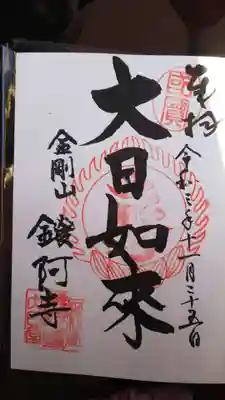 奉拝
令和三年十一月二十五日
大日如来
金剛山
鑁阿寺